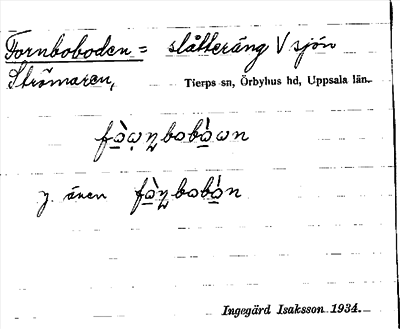 Fornboboden = slåtteräng V sjön
Strömaren, Tierps sn, Örbyhus hd, Uppsala län.
y. även
Ingegärd Isaksson 1934.